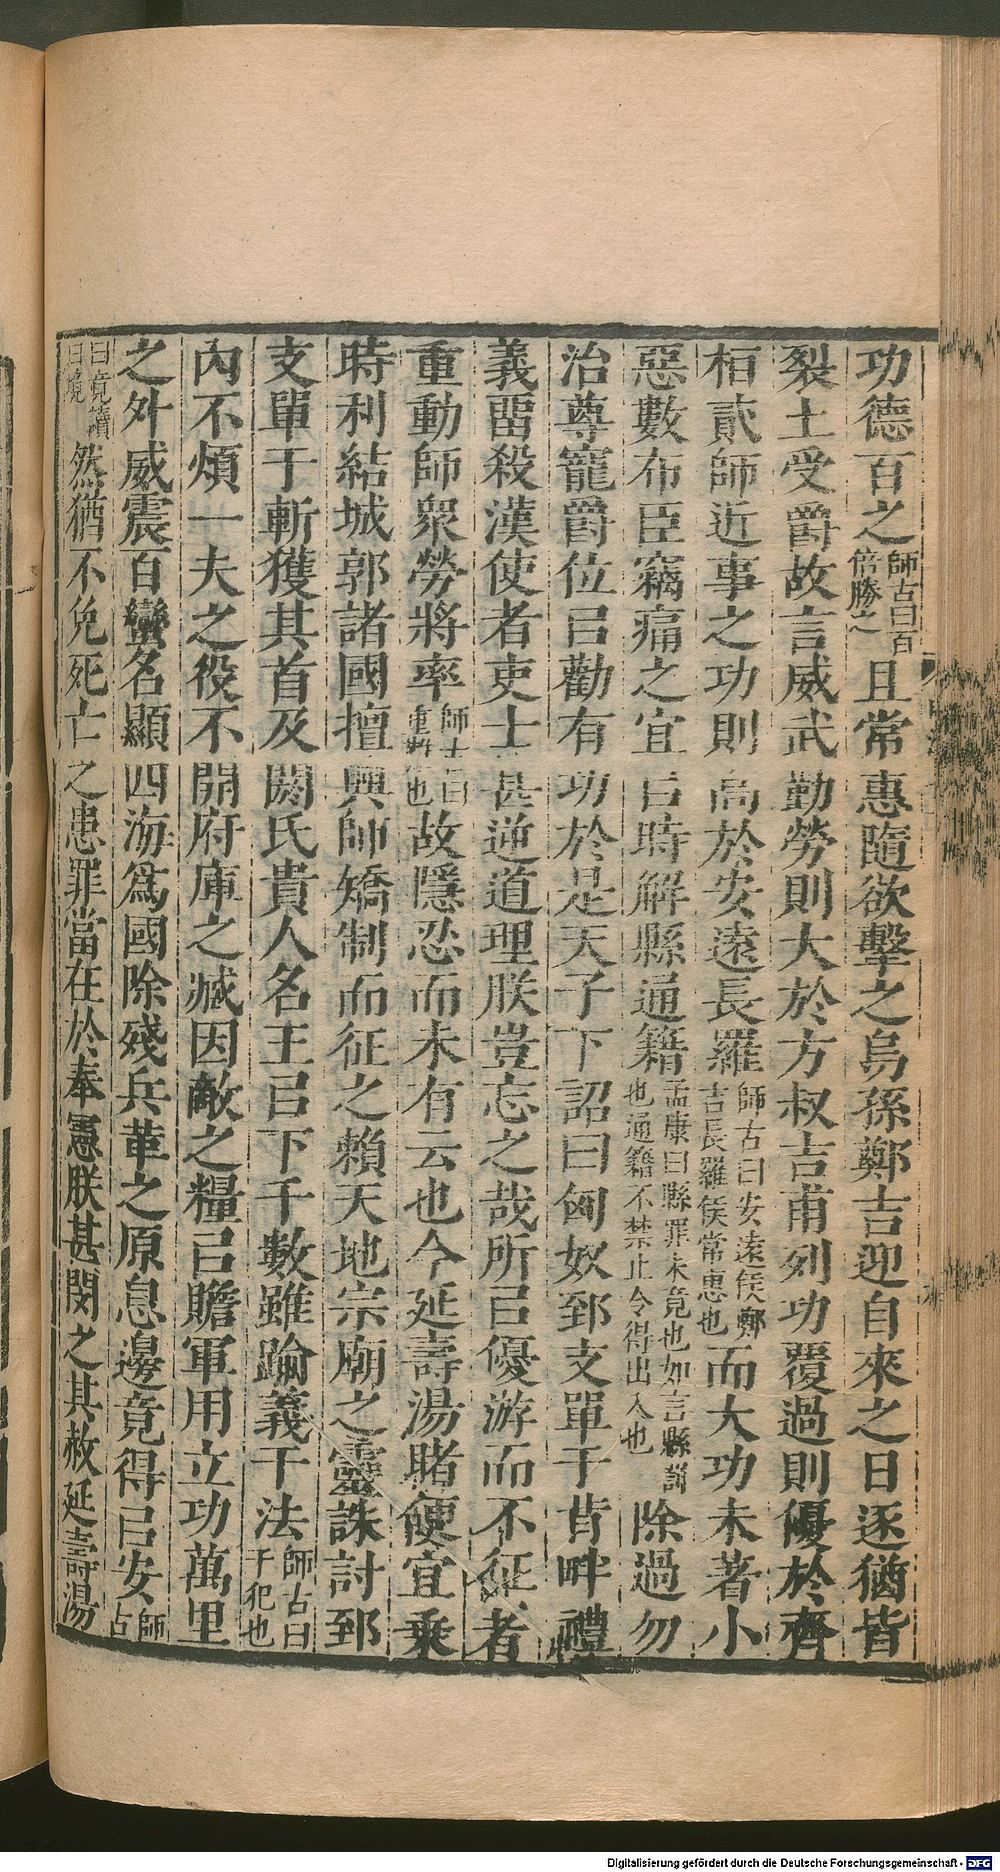 功德百之師古曰百倍勝之且常惠隨欲擊之烏孫鄭吉迎自來之日逐猶皆
裂土受爵故言威武勤勞則大於方叔吉甫列功覆過則優於齊
桓貳師近事之功則高於安遠長羅師古曰安遠侯鄭吉長羅侯常惠也而大功未著小
惡數布臣竊痛之宜㠯時解縣通籍孟康曰縣罪未竟也如言縣罰也通籍不禁止令得出入也除過勿
治尊寵爵位㠯勸有功於是天子下詔曰匈奴郅支單于背畔禮
義畱殺漢使者吏士甚逆道理朕豈忘之哉所㠯優游而不征者
重動師衆勞將率師古曰重難也故隱忍而未有云也今延壽湯睹便宜乘
時利結城郭諸國擅興師矯制而征之賴天地宗廟之靈誅討郅
支單于斬獲其首及閼氏貴人名王㠯下千數雖踰義干法師古曰干犯也
內不煩一夫之役不開府庫之臧因敵之糧㠯贍軍用立功萬里
之外威震百蠻名顯四海爲國除殘兵革之原息邊竟得㠯安師古
曰竟讀曰境然猶不免死亡之患罪當在於奉憲朕甚閔之其赦延壽湯
Digitalisierung gefördert durch die Deutsche Forschungsgemeinschaft - DFG